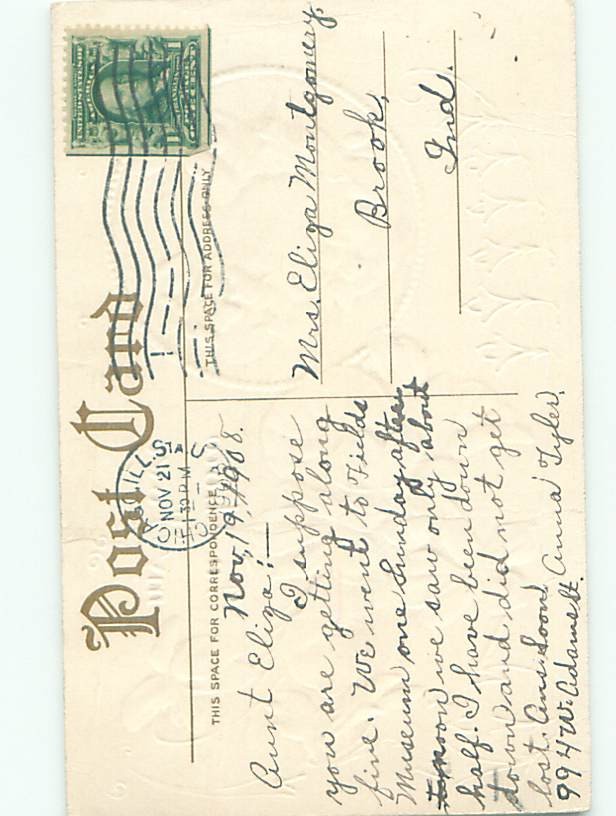 Post Card
THIS SPACE FOR CORRESPONDENCE
THIS SPACE FOR ADDRESS ONLY
UNITED STATES OF
AMERICA
ILL. STA
NOV 21
1 30 P M
CHICAGO
Nov, 19, 1908.
Aunt Eliza:—
I suppose
you are getting along
fine. We went to Fields
Museum one Sunday after
noon we saw only about
half. I have been down
town and did not get
lost. Ans. soon
Anna Tyler.
994 W. Adams St.
Mrs. Eliza Montgomery.
Brook,
Ind.